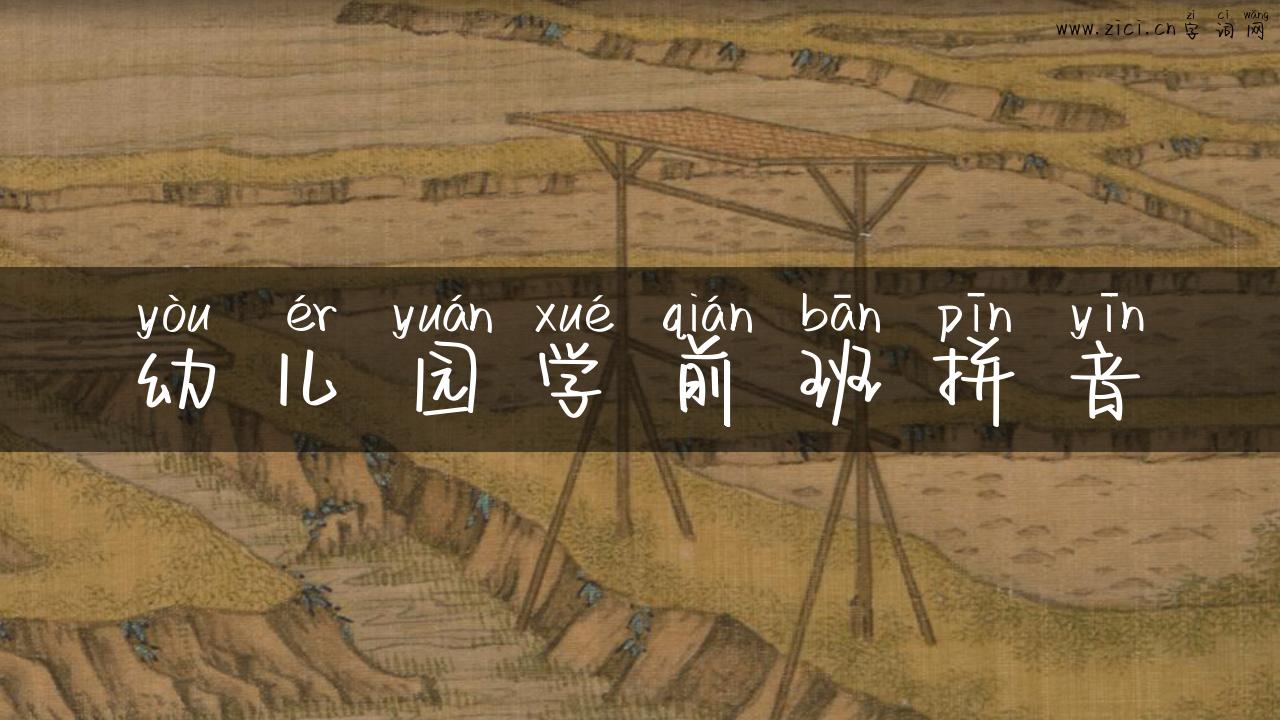 zì cí wǎng
www.zici.cn 字 词 网
yòu ér yuán xué qián bān pīn yīn
幼 儿 园 学 前 班 拼 音